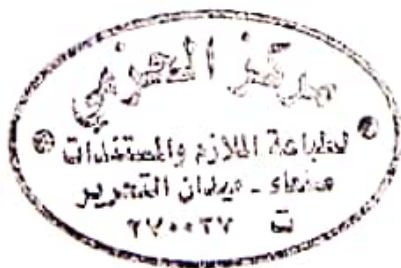 مركز العزي
لطباعة الملازم والمستندات
صنعاء - ميدان التحرير
ت ٢٧٠٠٣٧